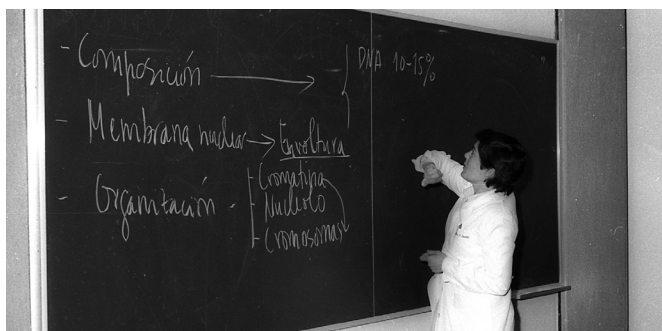 - Composición → { DNA 10-15%
- Membrana nuclear → Envoltura
- Organización - Cromatina
- Nucleolo
- Cromosomas